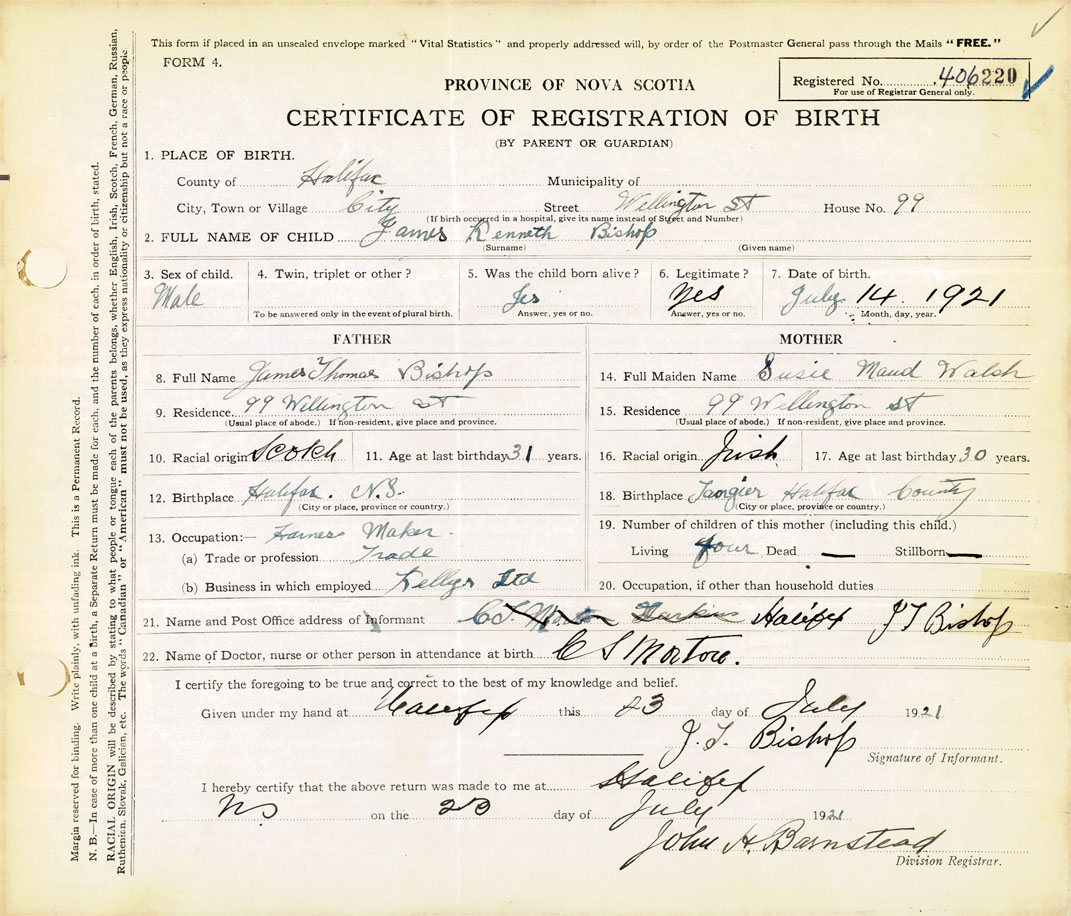 This form if placed in an unsealed envelope marked "Vital Statistics" and properly addressed will, by order of the Postmaster General pass through the Mails "FREE."
FORM 4.
Registered No. 406220
For use of Registrar General only.
PROVINCE OF NOVA SCOTIA
CERTIFICATE OF REGISTRATION OF BIRTH
(BY PARENT OR GUARDIAN)
1. PLACE OF BIRTH.
County of Halifax Municipality of
City, Town or Village City Street Wellington St House No. 99
(If birth occurred in a hospital, give its name instead of Street and Number)
2. FULL NAME OF CHILD James Kenneth Bishop
(Surname) (Given name)
3. Sex of child. 4. Twin, triplet or other? 5. Was the child born alive? 6. Legitimate? 7. Date of birth.
Male Yes Yes July 14. 1921
To be answered only in the event of plural birth. Answer, yes or no. Answer, yes or no. Month, day, year.
FATHER
8. Full Name James Thomas Bishop
9. Residence. 99 Willington St
(Usual place of abode.) If non-resident, give place and province.
10. Racial origin Scotch 11. Age at last birthday 31 years.
12. Birthplace Halifax. N.S.
(City or place, province or country.)
13. Occupation:— Harnes Maker.
(a) Trade or profession Trade
(b) Business in which employed Kellys Ltd
MOTHER
14. Full Maiden Name Susie Maud Walsh
15. Residence 99 Wellington St
(Usual place of abode.) If non-resident, give place and province.
16. Racial origin Irish 17. Age at last birthday 30 years.
18. Birthplace Tangier Halifax County
(City or place, province or country.)
19. Number of children of this mother (including this child.)
Living four Dead — Stillborn —
20. Occupation, if other than household duties
21. Name and Post Office address of Informant Halifax J T Bishop
22. Name of Doctor, nurse or other person in attendance at birth C S Morton.
I certify the foregoing to be true and correct to the best of my knowledge and belief.
Given under my hand at Halifax this 23 day of July 1921
J. T. Bishop
Signature of Informant.
I hereby certify that the above return was made to me at Halifax
NS on the 23 day of July 1921
John H. Barnstead
Division Registrar.
Margin reserved for binding. Write plainly, with unfading ink. This is a Permanent Record.
N. B.—In case of more than one child at a birth, a Separate Return must be made for each, and the number of each, in order of birth, stated.
RACIAL ORIGIN will be described by stating to what people or tongue each of the parents belongs, whether English, Irish, Scotch, French, German, Russian,
Ruthenian, Slovak, Galician, etc. The words "Canadian" or "American" must not be used, as they express nationality or citizenship but not a race or people.